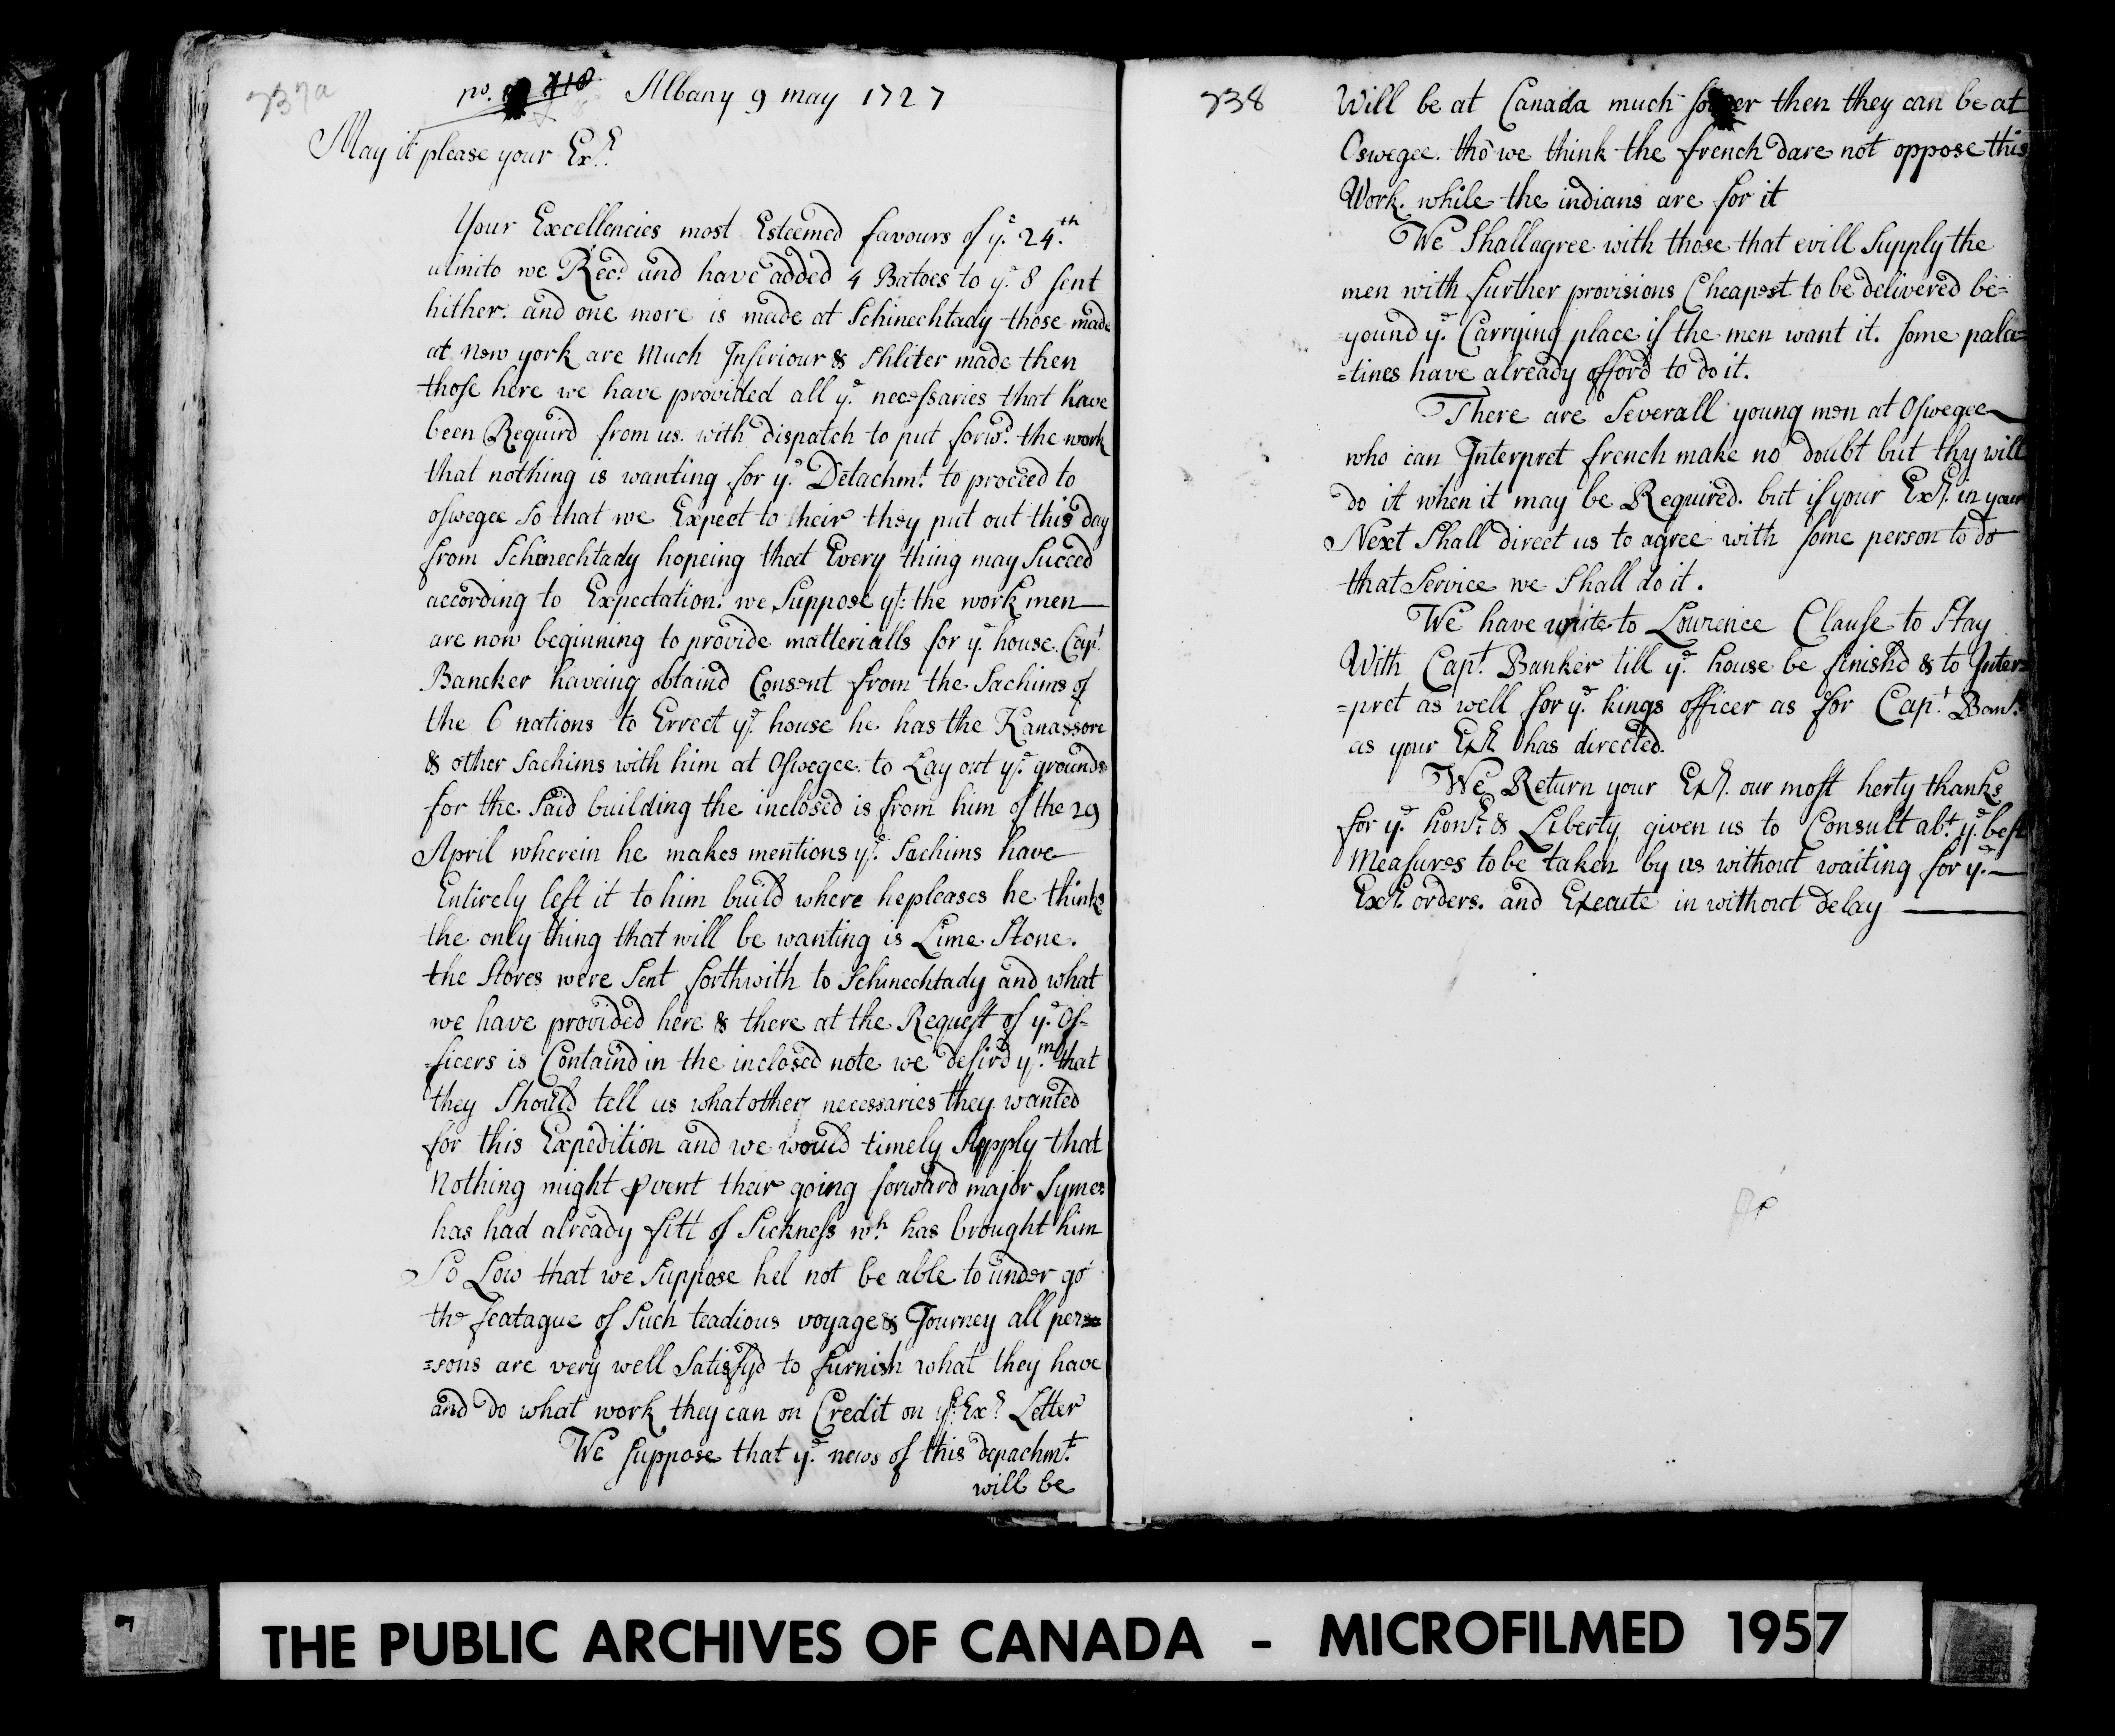 737a
no. 718 Albany 9 may 1727
May it please your Exl.
Your Excellencies most Esteemed favours of ye. 24th
ulmito we Recd. and have added 4 Batoes to ye. 8 sent
hither. and one more is made at Schinechtady those made
at new york are Much Inferiour & Shliter made then
those here we have provided all ye. necessaries that have
been Requird from us. with dispatch to put forwd. the work
that nothing is wanting for ye. Detachmt. to proceed to
oswegee so that we Expect to heir they put out this day
from Schinechtady hopeing that Every thing may Succed
according to Expectation. we Suppose yt. the work men
are now beginning to provide matterialls for ye. house. Capt.
Bancker haveing obtaind Consent from the Sachims of
the 6 nations to Errect ye. house he has the Kanassore
& other Sachims with him at Oswegee. to Lay out ye. grounds
for the said building the inclosed is from him of the 29
April wherein he makes mentions ye. Sachims have
Entirely left it to him build where he pleases he thinks
the only thing that will be wanting is Lime Stone.
the Stores were Sent forthwith to Schinechtady and what
we have provided here & there at the Request of ye. Of-
ficers is Containd in the inclosed note we desird ym. that
they Should tell us what other necessaries they wanted
for this Expedition and we would timely Supply that
Nothing might pvent their going forward major Symes
has had already fitt of Sickness wh. has brought him
So Low that we Suppose hel not be able to under go
the featague of Such teadious voyage & Journey all per=
=sons are very well Satisfyd to furnish what they have
and do what work they can on Credit on yr. Exs. Letter
We Suppose that ye. news of this depachmt.
will be
738
Will be at Canada much soner then they can be at
Oswegee. tho we think the french dare not oppose this
Work. while the indians are for it
We Shall agree with those that will Supply the
men with further provisions Cheapest to be delivered be=
=yound ye. Carrying place if the men want it. Some pala=
=tines have already offord to do it.
There are Severall young men at Oswegee
who can Interpret french make no doubt but thy will
do it when it may be Required. but if your Exl. in your
Next Shall direct us to agree with some person to do
that Service we Shall do it.
We have write to Lourence Clause to Stay
With Capt. Banker till ye. house be finishd & to Inter=
=pret as well for ye. kings officer as for Capt. Bank.
as your Exl. has directed.
We Return your Exl. our most herty thanks
for ye. honr. & Liberty given us to Consult abt. ye. best
Measures to be taken by us without waiting for yr.
Exl. orders. and Execute in without delay
THE PUBLIC ARCHIVES OF CANADA - MICROFILMED 1957